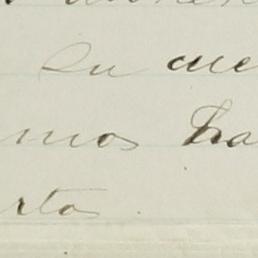 su cue
mos ha
rta.